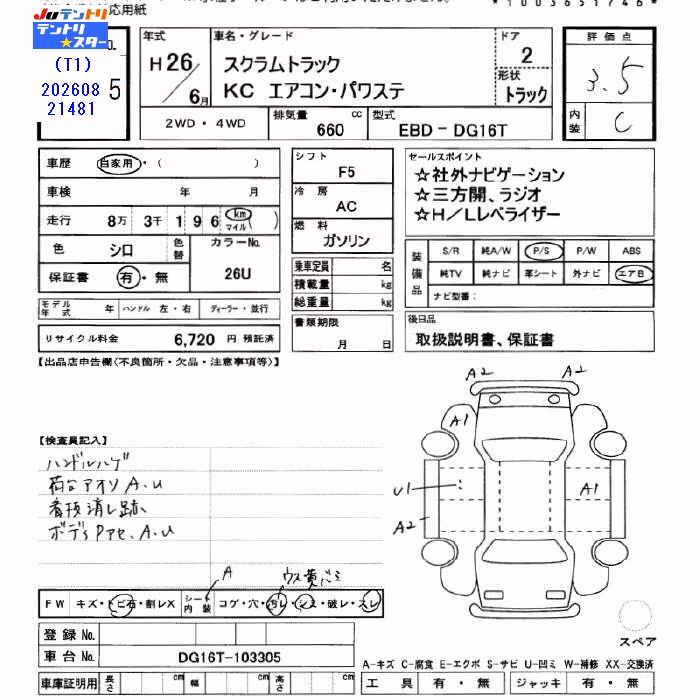 JUテントリ
テントリ★スター
(T1)
202608
21481
応用紙
No.
5
年式 車名・グレード ドア
H26/6月
スクラムトラック
KC エアコン・パワステ
2
形状
トラック
2WD・4WD 排気量 660 cc 型式 EBD-DG16T
評価点
3.5
内装 C
車歴 自家用・( )
車検 年 月
走行 8万 3千 1 9 6 km マイル
色 シロ 色替 カラーNo. 26U
保証書 有・無
モデル年式 年 ハンドル 左・右 ディーラー・並行
リサイクル料金 6,720 円 預託済
シフト F5
冷房 AC
燃料 ガソリン
乗車定員 名
積載量 kg
総重量 kg
書類期限
月 日
セールスポイント
☆社外ナビゲーション
☆三方開、ラジオ
☆H/Lレベライザー
装備品
S/R 純A/W P/S P/W ABS
純TV 純ナビ 革シート 外ナビ エアB
ナビ型番:
後日品
取扱説明書、保証書
【出品店申告欄(不良箇所・欠品・注意事項等)】
【検査員記入】
ハンドルハゲ
荷台アオリ A.U
看板消し跡、
ボデ
A2 A2
A1
U1
A1
A2
A
FW キズ・トビ石・割レX シート内装 コゲ・穴・汚レ・シミ・破レ・スレ
登録No.
車台No. DG16T-103305
車庫証明用 長さ cm 幅 cm 高さ cm
スペア
A-キズ C-腐食 E-エクボ S-サビ U-凹ミ W-補修 XX-交換済
工具 有・無 ジャッキ 有・無